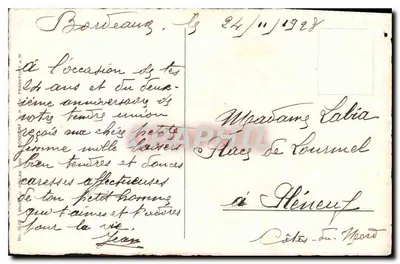 Bordeaux le 24/11/1928
à l'occasion de tes
24 ans et du deux-
ième anniversaire de
notre tendre union
reçois ma chère petite
femme mille baisers
bien tendres et douces
caresses affectueuses
de ton petit homme
qui t'aimes et t'adores
pour la vie
Jean
Madame Labia
Place de Lourmel
à Pléneuf
Côtes-du-Nord